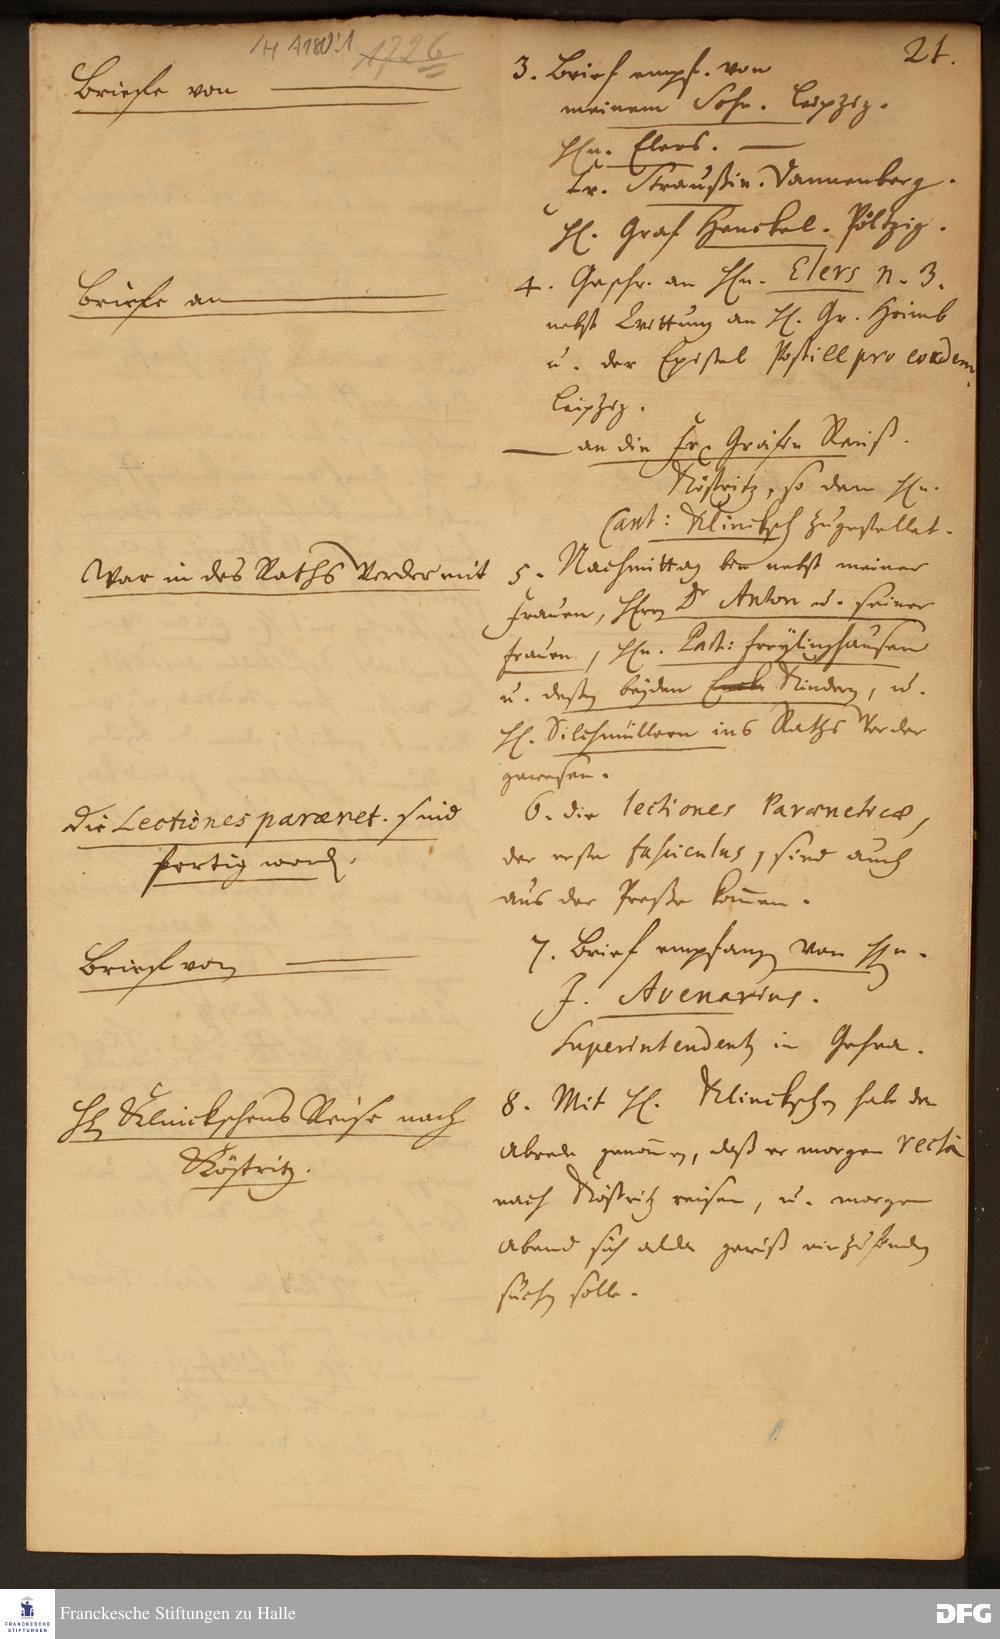 /H A180:1 1726
21.
Briefe von
3. Brief empf. von
meinem Sohn. Leipzig.
Hn. Elers.
Fr. Straußin. Dannenberg.
H. Graf Henckel. Pöltzig.
Briefe an
4. Geschr. an Hn. Elers n. 3.
nebst Qvittung an H. Gr. Heimb
u. der Epistel Postill pro eodem.
Leipzig.
an die Fr. Gräfin Reuß.
Köstritz, so dem Hn.
Cant: Klincksch zugestellet.
War in des Raths Werder mit
5. Nachmittag bin nebst meiner
Frauen, Herrn Dr Anton u. seiner
Frauen, Hn. Past: Freylinghausen
u. deßen beyden Kindern, u.
H. Silchmüllern ins Raths Werder
gewesen.
Die Lectiones parænet. sind
fertig word.
6. die lectiones Paræneticæ,
der erste fasciculus, sind auch
aus der Preße kommen.
Brief von
7. Brief empfangen von Hn.
J. Avenarius.
Superintendent in Gehra.
H Klinckschens Reise nach
Köstritz.
8. Mit H. Klinckschen habe die
Abrede genommen, daß er morgen rectà
nach Köstritz reisen, u. morgen
Abend sich alda gewiß einzufinden
suchen solle.
Franckesche Stiftungen zu Halle
FRANCKESCHE
STIFTUNGEN
DFG